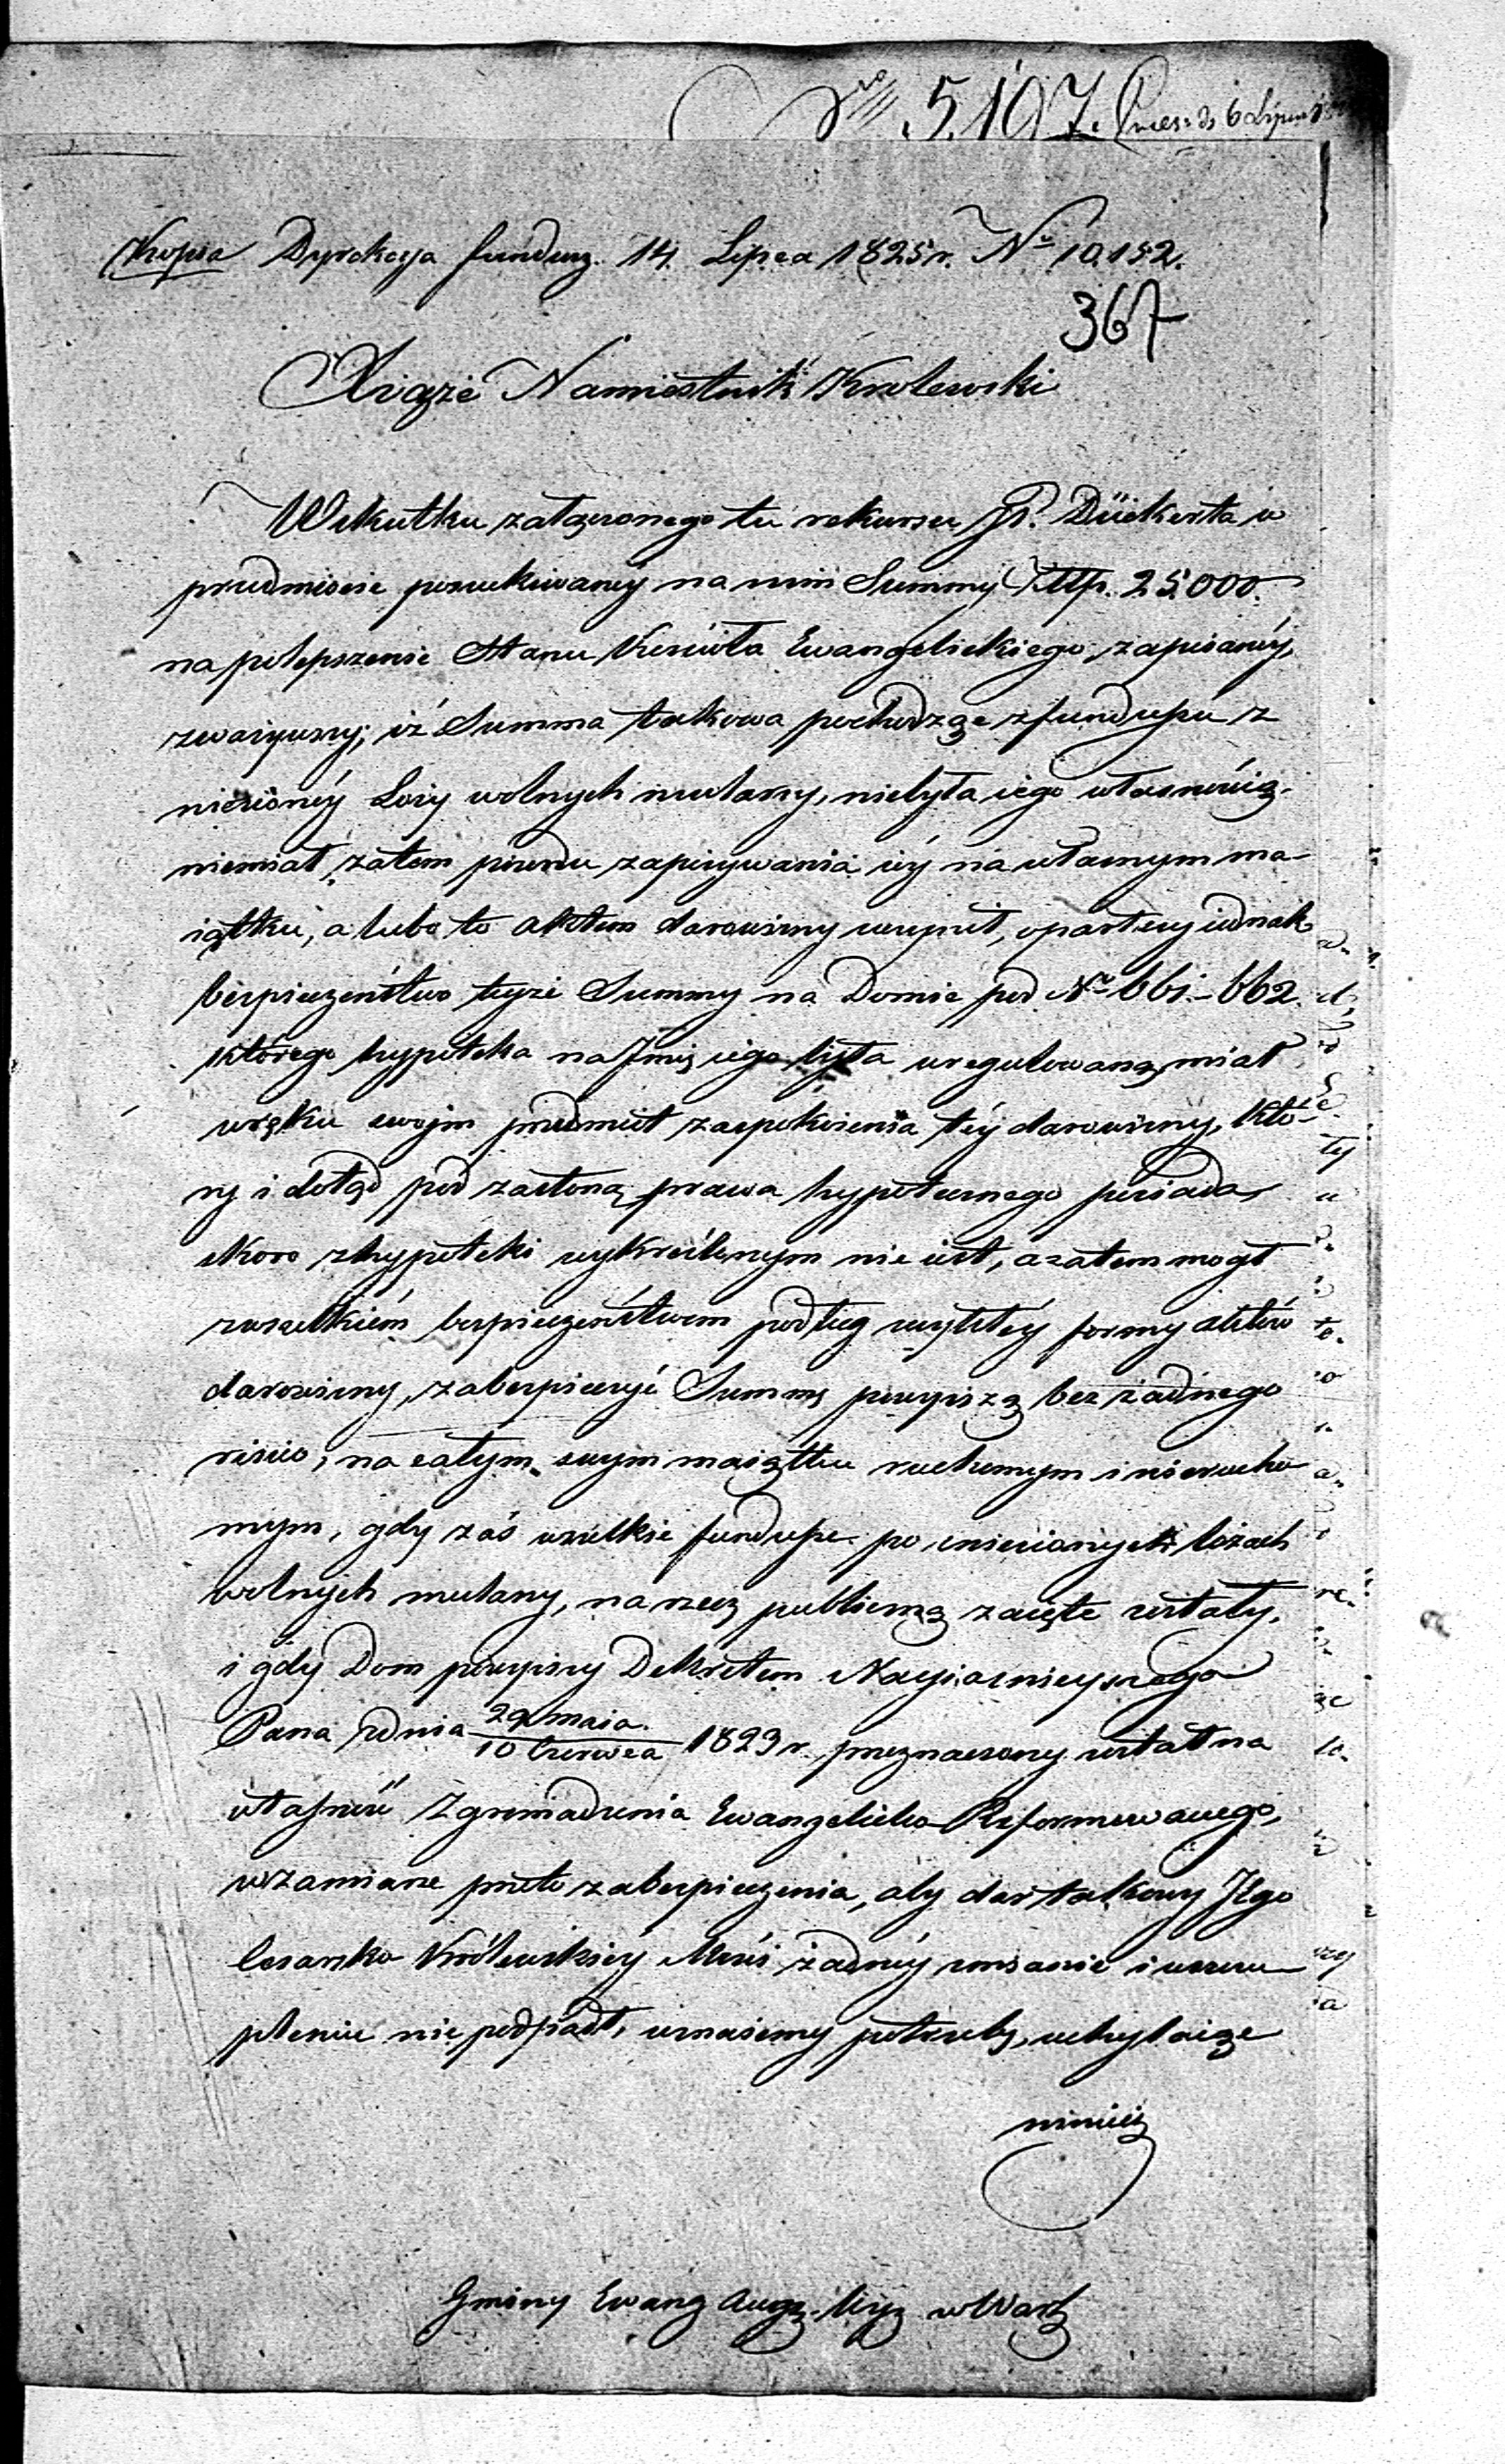 Nro 5,107. Prses: ds 6 Lipca
Kopia Dyrekcya fundusz. 14. Lipca 1825 r. No 10,152.
367
Xiąże Namiestnik Krolewski
Wskutku załączonego tu rekursu JP. Dückerta w
przedmiocie poszukiwanéy na nim Summy Złtp. 25,000.
na polepszenie Stanu Kościoła Ewangelickiego, zapisanéy,
zważywszy, iż Summa takowa pochodząc z funduszu z
niesionéy Loży wolnych mularzy, niebyła iego własnością.
niemiał zatem powodu zapisywania iéy na własnym ma-
iątku, a lubo to aktem darowizny uczynił, oparłszy iednak
bespieczeństwo teyże Summy na Domie pod No 661-662.
którego hypoteka na Imię iego była uregulowaną, miał
wręku swojm przedmiot zaspokoienia téy darowizny, któ-
ry i dotąd pod zasłoną prawa hypotecznego posiada,
skoro z hypoteki wykreślonym nie iest, a zatem mogł
zwszelkiém bespieczeństwem podług zwykłéy formy aktów
darowizny, zabespieczyć Summę powyższą bez żadnego
, na całym swym maiątku ruchomym i nierucho
mym, gdy zaś wszelkie fundusze po zniesionych lożach
wolnych mularzy, na rzecz publiczną zaięte zostały,
i gdy Dom powyższy Dekretem Nayiaśnieyszego
Pana z dnia 29 maia./10 Czerwca 1823 r. przeznaczony został na
własność Zgromadzenia Ewangelicko-Reformowanego,
wzamiarze przeto zabespieczenia, aby dar takowy Jego
Cesarsko Królewskiéy Mości żadnéy zmianie i uszczu
pleniu nie podpadł, uznaiemy potrzebę, uchylaiąc
niniéi
Gminy Ewang Augs. Wyz w Warsz